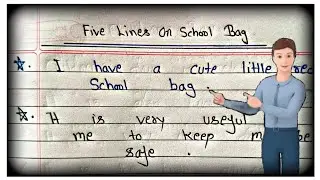 Five Lines On School Bag
I have a cute little
School bag.
It is very useful
me to keep
safe.